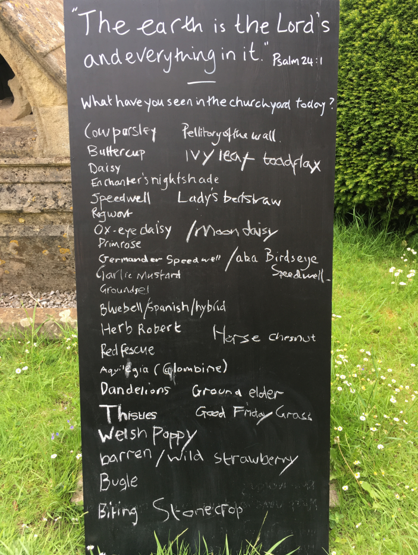 "The earth is the Lord's
and everything in it." Psalm 24:1
What have you seen in the churchyard today?
Cow parsley Pellitory of the wall
Buttercup Ivy leaf toadflax
Daisy
Enchanter's nightshade
Speedwell Lady's bedstraw
Ragwort
Ox-eye daisy / Moon daisy
Primrose
Germander Speedwell / aba Birdseye
Speedwell
Garlic Mustard
Groundsel
Bluebell/spanish/hybrid
Herb Robert Horse chesnut
Red fescue
Aquilegia (Colombine)
Dandelions Ground elder
Thistles Good Friday Grass
Welsh Poppy
barren/wild strawberry
Bugle
Biting Stonecrop